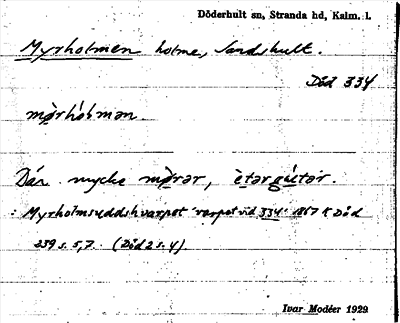 Döderhult sn, Stranda hd, Kalm. l.
Myrholmen holme, Sandshult.
Död 334
Där mycke
: Myrholmsuddshvarpet "varpet vid 334" 1867 K Död
239 s. 5,7. (Död 2 s. 4).
Ivar Modéer 1929